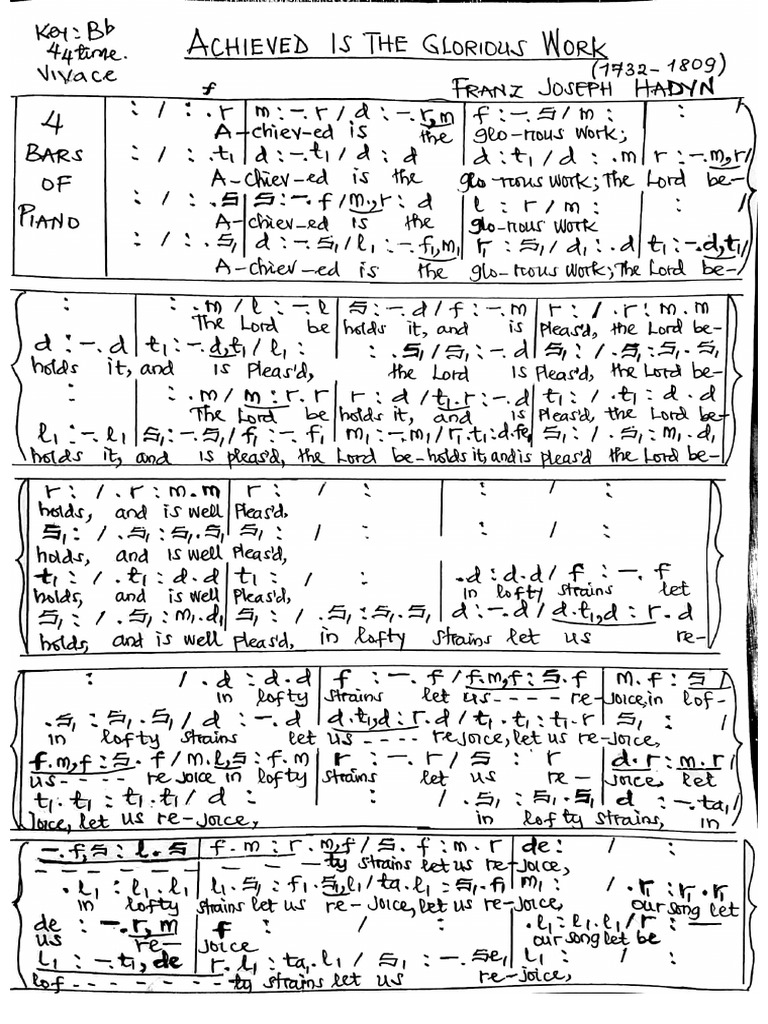 Key: Bb
44 time.
Vivace
ACHIEVED IS THE GLORIOUS WORK
(1732-1809)
FRANZ JOSEPH HADYN
f
4 BARS OF PIANO
: / : .r | m :-.r / d :-.r,m | f :-.s / m : | : /
A-chiev-ed is the glo-rious work;
: / : .t₁ | d :-.t₁ / d : d | d : t₁ / d : .m | r :-.m,r /
A-chiev-ed is the glo-rious work; The Lord be-
: / : .s | s :-.f / m.,r : d | l : r / m : | : /
A-chiev-ed is the glo-rious work
: / : .s₁ | d :-.s₁ / l₁ :-.f₁,m₁ | r₁ : s₁ / d₁ : .d | t₁ :-.d,t₁ /
A-chiev-ed is the glo-rious work; The Lord be-
: | : .m / l :-.l | s :-.d / f :-.m | r : / .r : m.m
The Lord be holds it, and is Pleas'd, the Lord be-
d :-.d | t₁ :-.d,t₁ / l₁ : | : .s₁ / s₁ :-.d | s₁ : / .s₁ : s₁.s₁
holds it, and is Pleas'd, the Lord is Pleas'd, the Lord be-
: | : .m / m : r.r | r : d / t₁.r :-.d | t₁ : / .t₁ : d.d
The Lord be holds it, and is Pleas'd, the Lord be-
l₁ :-.l₁ | s₁ :-.s₁ / f₁ :-.f₁ | m₁ :-.m₁ / r₁.t₁ : d.fe₁ | s₁ : / .s₁ : m₁.d₁
holds it, and is pleas'd, the Lord be-holds it, and is pleas'd the Lord be-
r : / .r : m.m | r : / : | : / :
holds, and is well Pleas'd,
s₁ : / .s₁ : s₁.s₁ | s₁ : / : | : / :
holds, and is well Pleas'd,
t₁ : / .t₁ : d.d | t₁ : / : | .d : d.d / f :-.f
holds, and is well Pleas'd, in lofty strains let
s₁ : / .s₁ : m₁.d₁ | s₁ : / .s₁ : s₁.s₁ | d :-.d / d.t₁,d : r.d
holds, and is well Pleas'd, in lofty strains let us re-
: / .d : d.d | f :-.f / f.m,f : s.f | m.f : s /
in lofty strains let us---- re-joice, in lof-
.s₁ : s₁.s₁ / d :-.d | d.t₁,d : r.d / t₁.t₁ : t₁.r | s₁ : /
in lofty strains let us ---- rejoice, let us re-Joice,
f.m,f : s.f / m.l,s : f.m | r :-.r / s : r | d.r : m.r /
us---- re joice in lofty strains let us re- joice, let
t₁.t₁ : t₁.t₁ / d : | : / .s₁ : s₁.s₁ | d :-.ta₁ /
Joice, let us re-Joice, in lofty strains, in
-.f,s : l.s | f.m : r.m,f / s.f : m.r | de : / :
- - - - - - - - - - ty strains let us re-joice,
.l₁ : l₁.l₁ | l₁.s₁ : f₁.s₁,l₁ / ta₁.l₁ : s₁.f₁ | m₁ : / .r₁ : r₁.r₁
in lofty strains let us re-Joice, let us re-Joice, our song let
de :-.r,m | f : / : | .l₁ : l₁.l₁ / r :
us re- Joice our song let be
l₁ :-.t₁,de | r.l₁ : ta₁.l₁ / s₁ :-.se₁ | l₁ : / :
lof - - - - - - - ty strains let us re-joice,